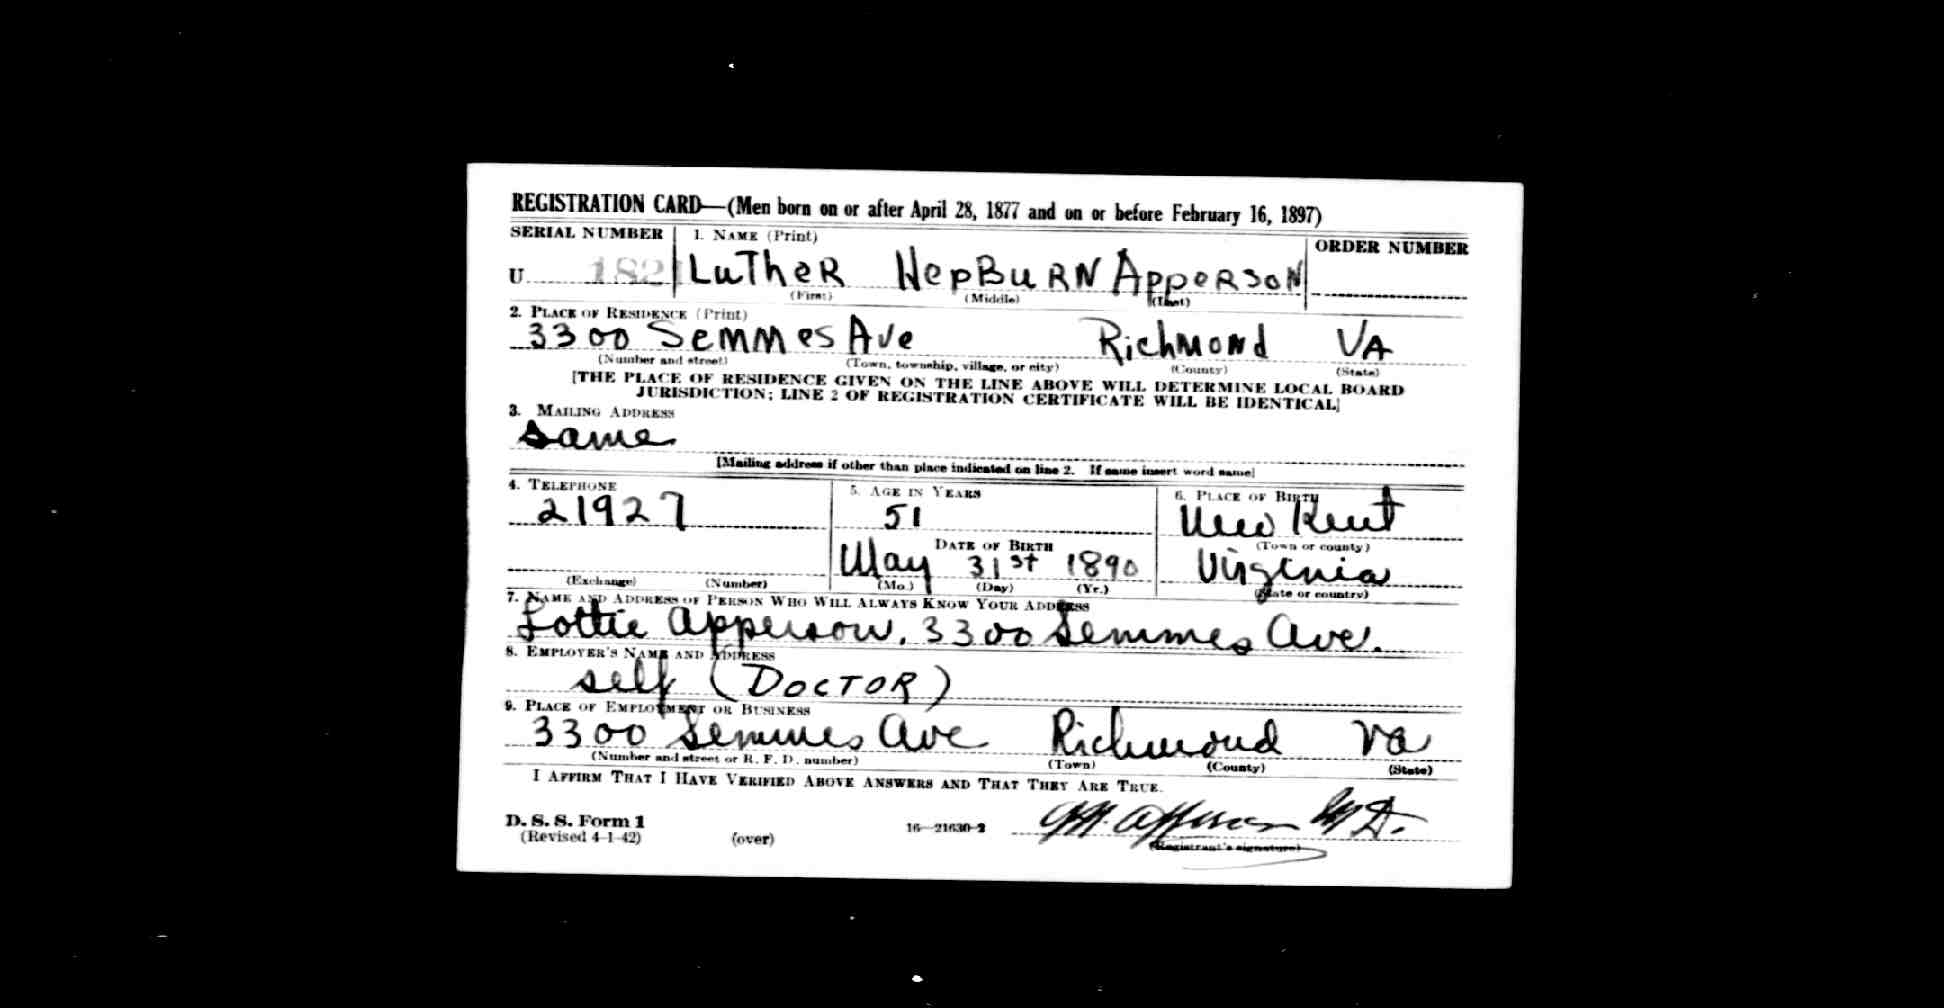 REGISTRATION CARD—(Men born on or after April 28, 1877 and on or before February 16, 1897)
SERIAL NUMBER 1. NAME (Print) ORDER NUMBER
U 182 LuTheR HepBuRN AppeRsoN
(First) (Middle) (Last)
2. PLACE OF RESIDENCE (Print)
3300 Semmes Ave Richmond VA
(Number and street) (Town, township, village, or city) (County) (State)
[THE PLACE OF RESIDENCE GIVEN ON THE LINE ABOVE WILL DETERMINE LOCAL BOARD
JURISDICTION; LINE 2 OF REGISTRATION CERTIFICATE WILL BE IDENTICAL]
3. MAILING ADDRESS
Same
[Mailing address if other than place indicated on line 2. If same insert word same]
4. TELEPHONE 5. AGE IN YEARS 6. PLACE OF BIRTH
21927 51 New Kent
DATE OF BIRTH (Town or county)
May 31st 1890 Virginia
(Exchange) (Number) (Mo.) (Day) (Yr.) (State or country)
7. NAME AND ADDRESS OF PERSON WHO WILL ALWAYS KNOW YOUR ADDRESS
Lottie Apperson, 3300 Semmes Ave.
8. EMPLOYER'S NAME AND ADDRESS
self (DOCTOR)
9. PLACE OF EMPLOYMENT OR BUSINESS
3300 Semmes Ave Richmond Va
(Number and street or R. F. D. number) (Town) (County) (State)
I AFFIRM THAT I HAVE VERIFIED ABOVE ANSWERS AND THAT THEY ARE TRUE.
D. S. S. Form 1
(Revised 4-1-42) (over) 16—21630-2 Apperson M D.
(Registrant's signature)